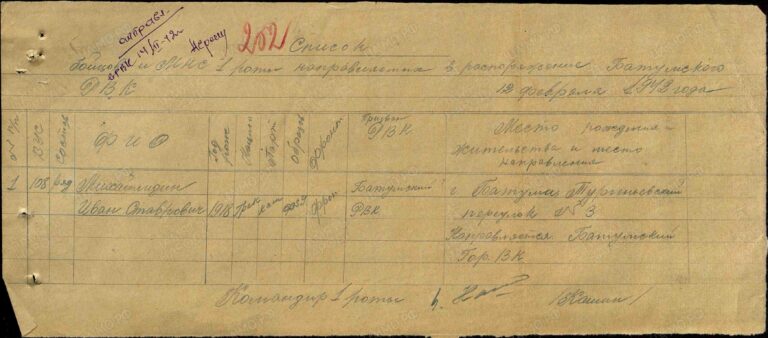 отправл.
ГВК 14/III-42г.
252
Список
бойцов и МНС 1 роты направляется в распоряжение Батумского
РВК
12 февраля 1942 года
№ п/п
ВУС
состав
ФИО
Год рожд
Национ
Парт
Образов
Призван
РВК
Место рождения
жительства и место
направления
1
108
ряд
Иван Ставрович
1918
грек
Батумский
РВК
г. Батуми Тургеневский
переулок № 3
Направляется Батумский
Гор. ВК
Командир 1 роты